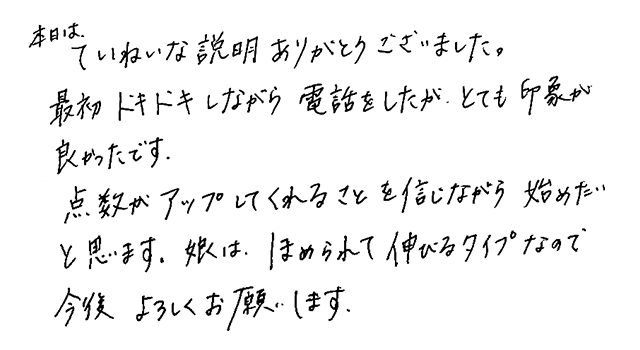 本日は、ていねいな説明ありがとうございました。
最初ドキドキしながら電話をしたが、とても印象が
良かったです。
点数がアップしてくれることを信じながら始めたい
と思います。娘は、ほめられて伸びるタイプなので
今後よろしくお願いします。